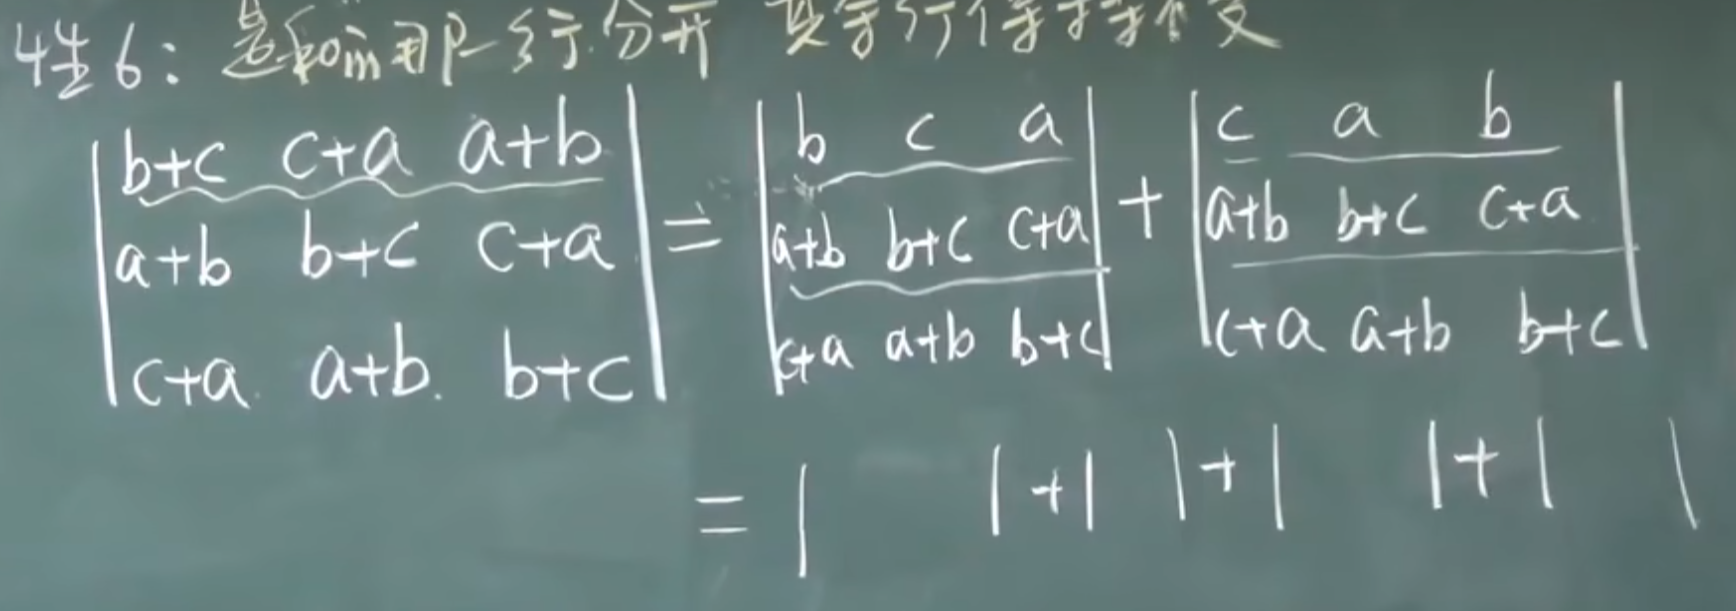 性6：是和的那一行分开 其余行保持不变
| b+c c+a a+b | | b c a | | c a b |
| a+b b+c c+a | = | a+b b+c c+a | + | a+b b+c c+a |
| c+a a+b b+c | | c+a a+b b+c | | c+a a+b b+c |
= | | + | | + | | + | |